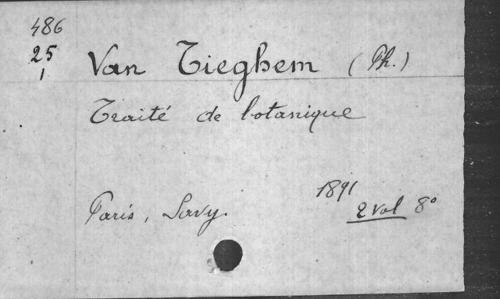 486
25
1
Van Tieghem (Ph.)
Traité de botanique
Paris, Savy.
1891
2 Vol 8°